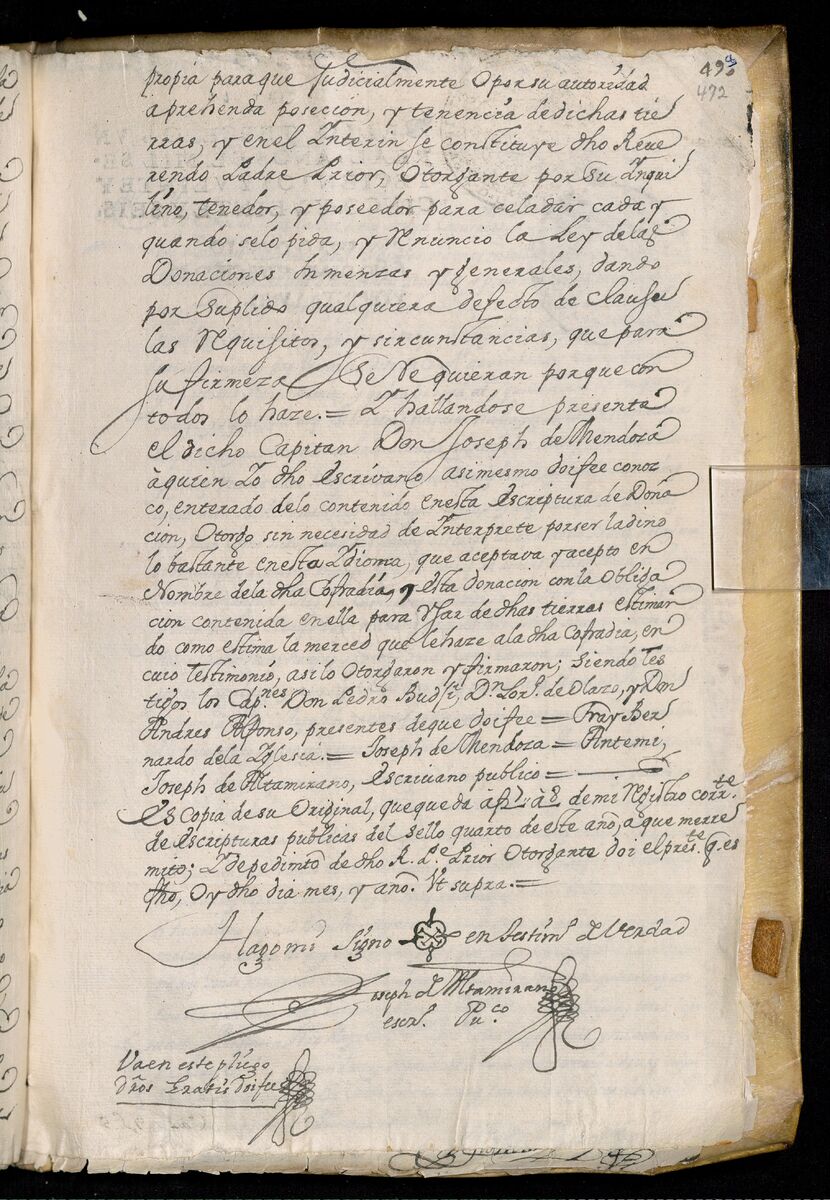 493
492
propia para que Judicialmente O por su autoridad
aprehenda posecion, y tenencia de dichas tie
rras, y en el Ynterin se constituye dho Reve
rendo Padre Prior, Otorgante por su Ynqui
lino, tenedor, y poseedor para celadar cada y
quando selo pida, y Renuncio la Ley delas
Donaciones Inmenzas y generales, dando
por Suplido qualquiera defecto de clausu
las Requisitos, y sircunstancias, que para
su firmeza Se Requieran porque con
todos lo haze.= Y hallandose presente
el dicho Capitan Don Joseph de Mendoza
à quien Yo dho Escrivano asimesmo doifee conoz
co, enterado delo contenido enesta Escriptura de Dona
cion, Otorgo sin necesidad de Ynterprete por ser ladino
lo bastante enesta Ydioma, que aceptava y acepto en
Nombre dela dha Cofradia, esta donacion con la Obliga
cion contenida enella para Usar de dhas tierras estiman
do como estima la merced que le haze ala dha Cofradia, en
cuio testimonio, asilo Otorgaron y firmaron; siendo tes
tigos los Capnes Don Pedro, Dn Lorº. de Olazo, y Don
Andres Alfonso, presentes deque doifee = Fray Ber
nardo dela Yglesia.= Joseph de Mendoza = Antemi,
Joseph de Altamirano, escrivano publico =
Es Copia de su Original, que queda à de mi Registro corrte.
de escripturas publicas del sello quarto de este año, a que me rre
mito; Y de pedimto de dho R. Pe. Prior Otorgante doi el preste. q. es
fho, O y dho dia mes, y año. Vt supra.=
Hago mi Signo en testimº. de Verdad
Joseph de Altamirano
escrº. Puco
Va en este pliego
dros Gratis doifee